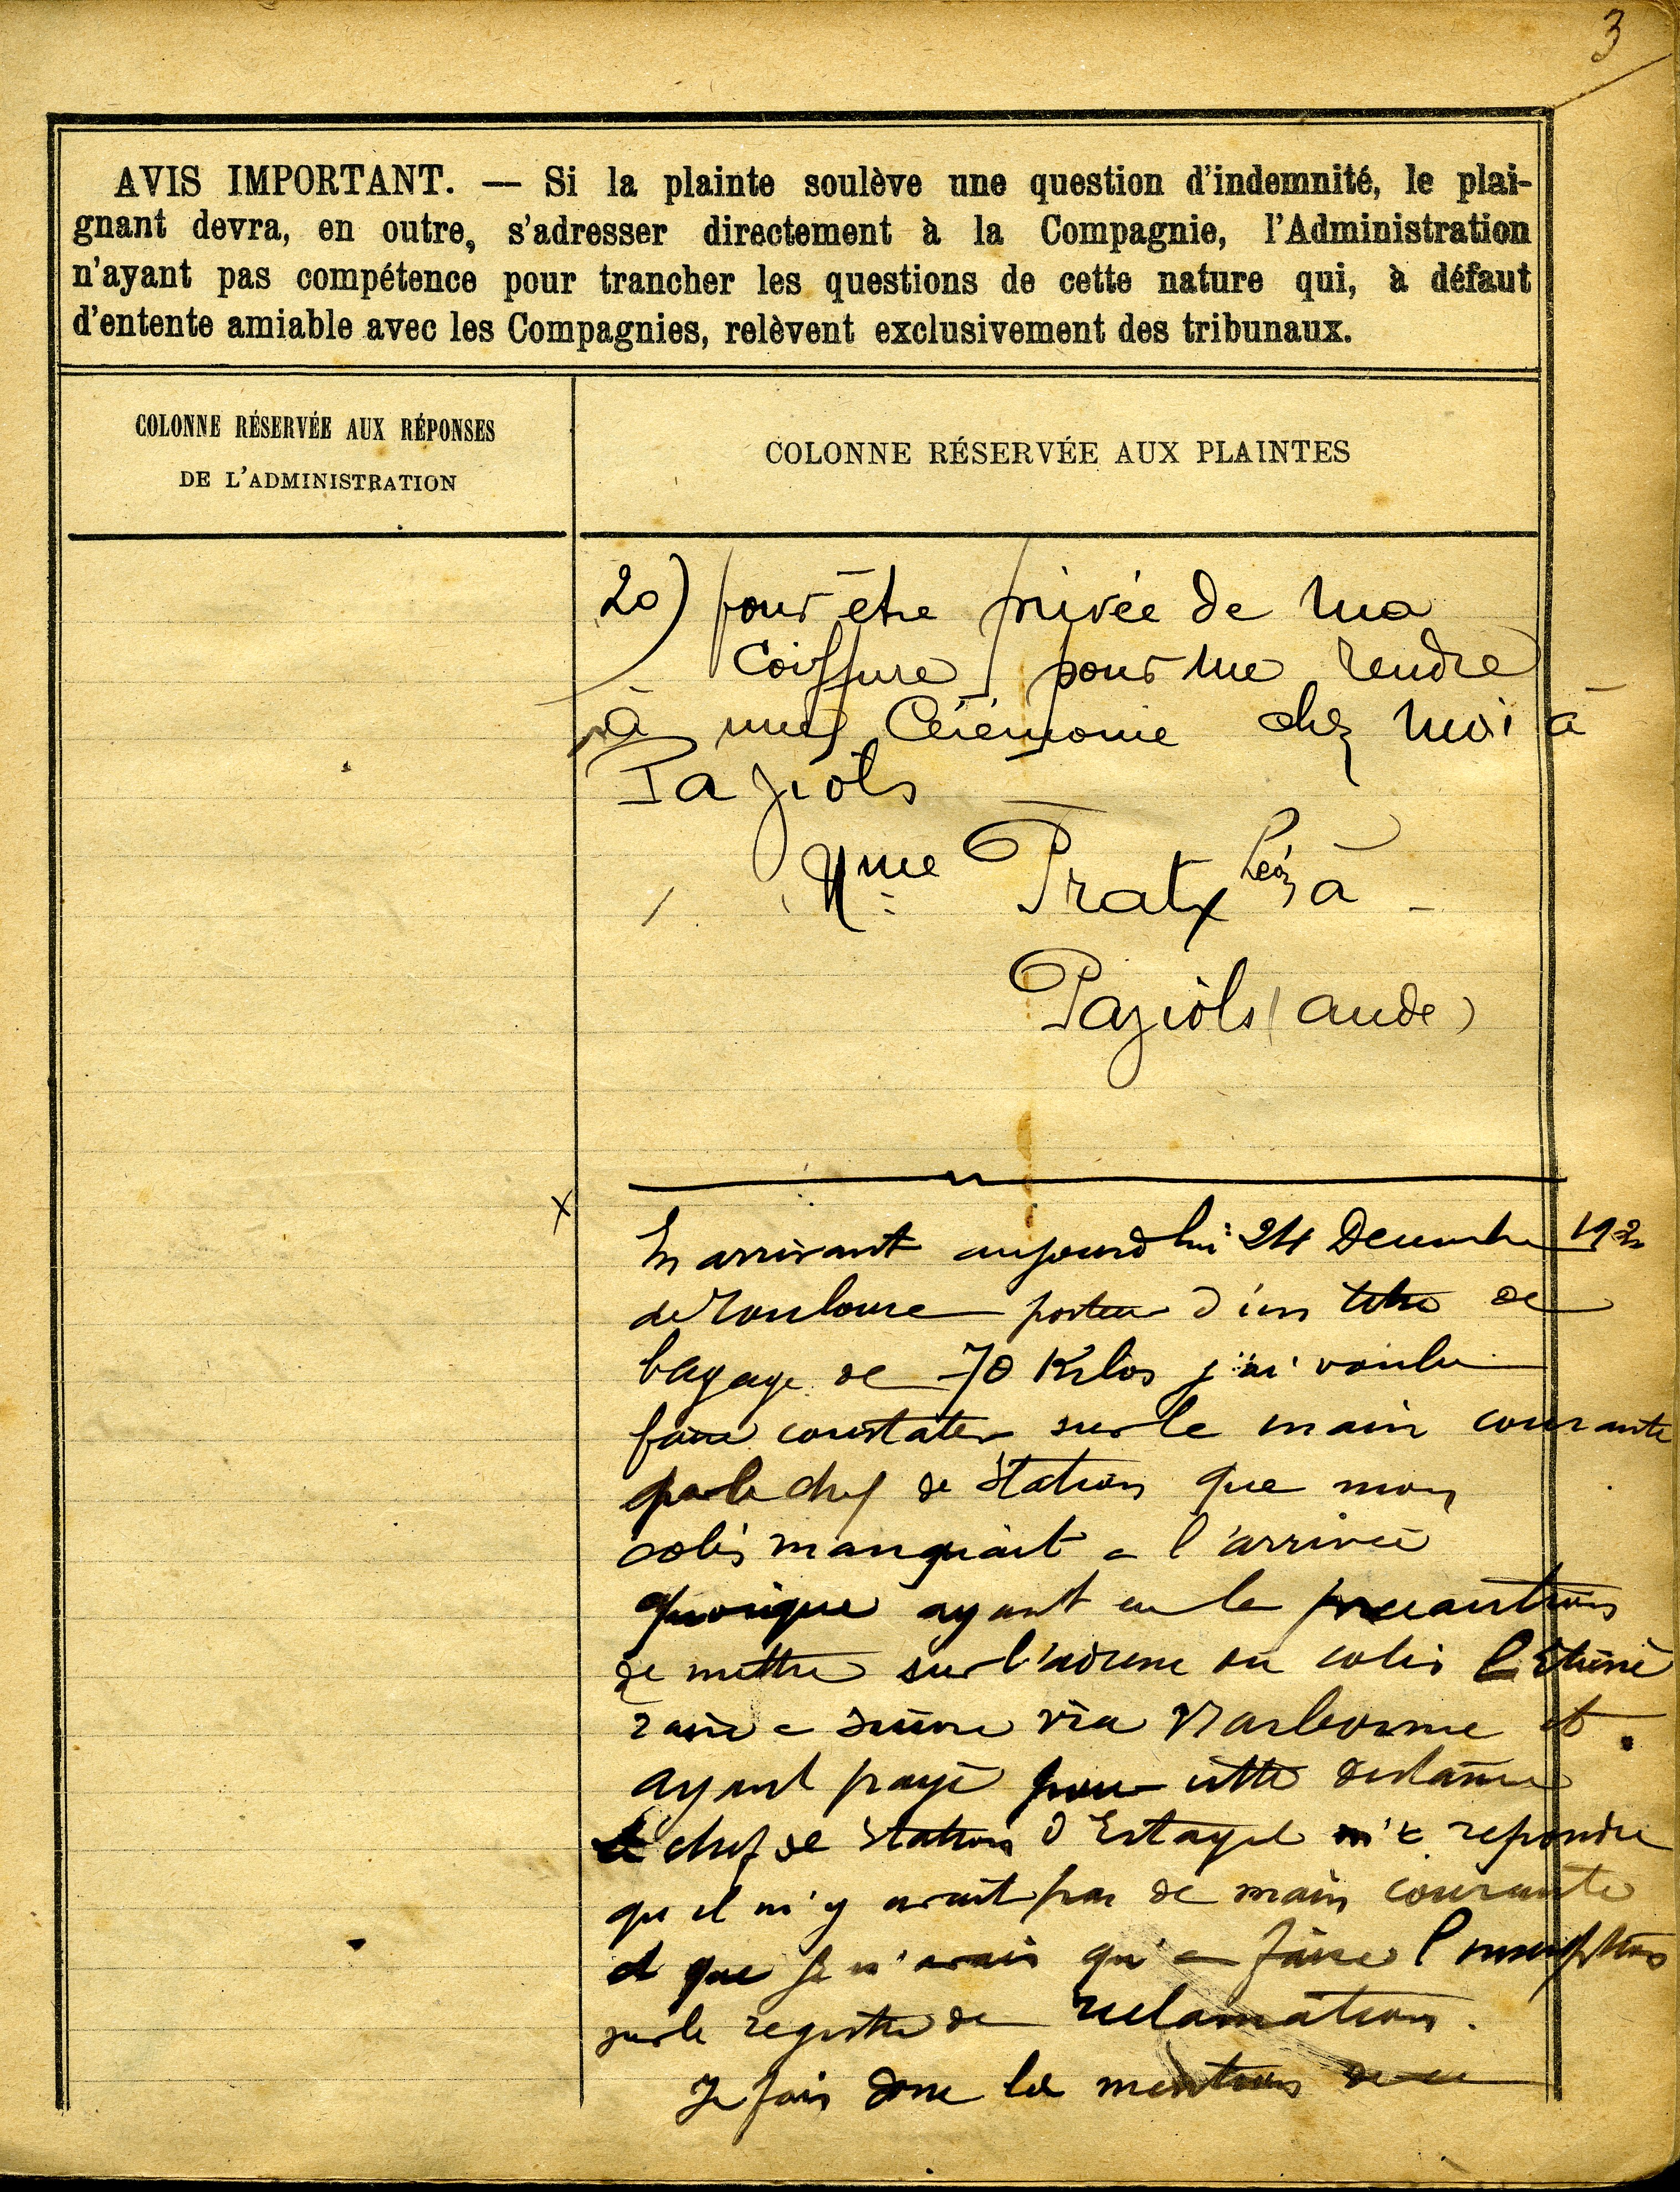 3
AVIS IMPORTANT. — Si la plainte soulève une question d'indemnité, le plai-
gnant devra, en outre, s'adresser directement à la Compagnie, l'Administration
n'ayant pas compétence pour trancher les questions de cette nature qui, à défaut
d'entente amiable avec les Compagnies, relèvent exclusivement des tribunaux.
COLONNE RÉSERVÉE AUX RÉPONSES
DE L'ADMINISTRATION
COLONNE RÉSERVÉE AUX PLAINTES
2o) pour être privée de ma
Coiffure pour me rendre
à une Cérémonie chez moi à
Paziols
Mme Pratx à
Paziols (aude)
x
En arrivant aujourd'hui 24 Decembre
de Toulouse porteur d'un titre de
bagage de 70 Kilos j'ai voulu
faire constater sur le main courante
par le chef de Station que mon
colis manquait a l'arrivée
quoique ayant eu la precaution
de mettre sur l'adresse du colis l'itiné
raire a suivre via Narbonne et
ayant payé pour cette distance
le chef de station d'Estagel m'a repondu
qu il n'y avait pas de main courante
et que je n'avais qu'a faire l'inscription
sur le registre de reclamation.
Je fais donc la mention de ce